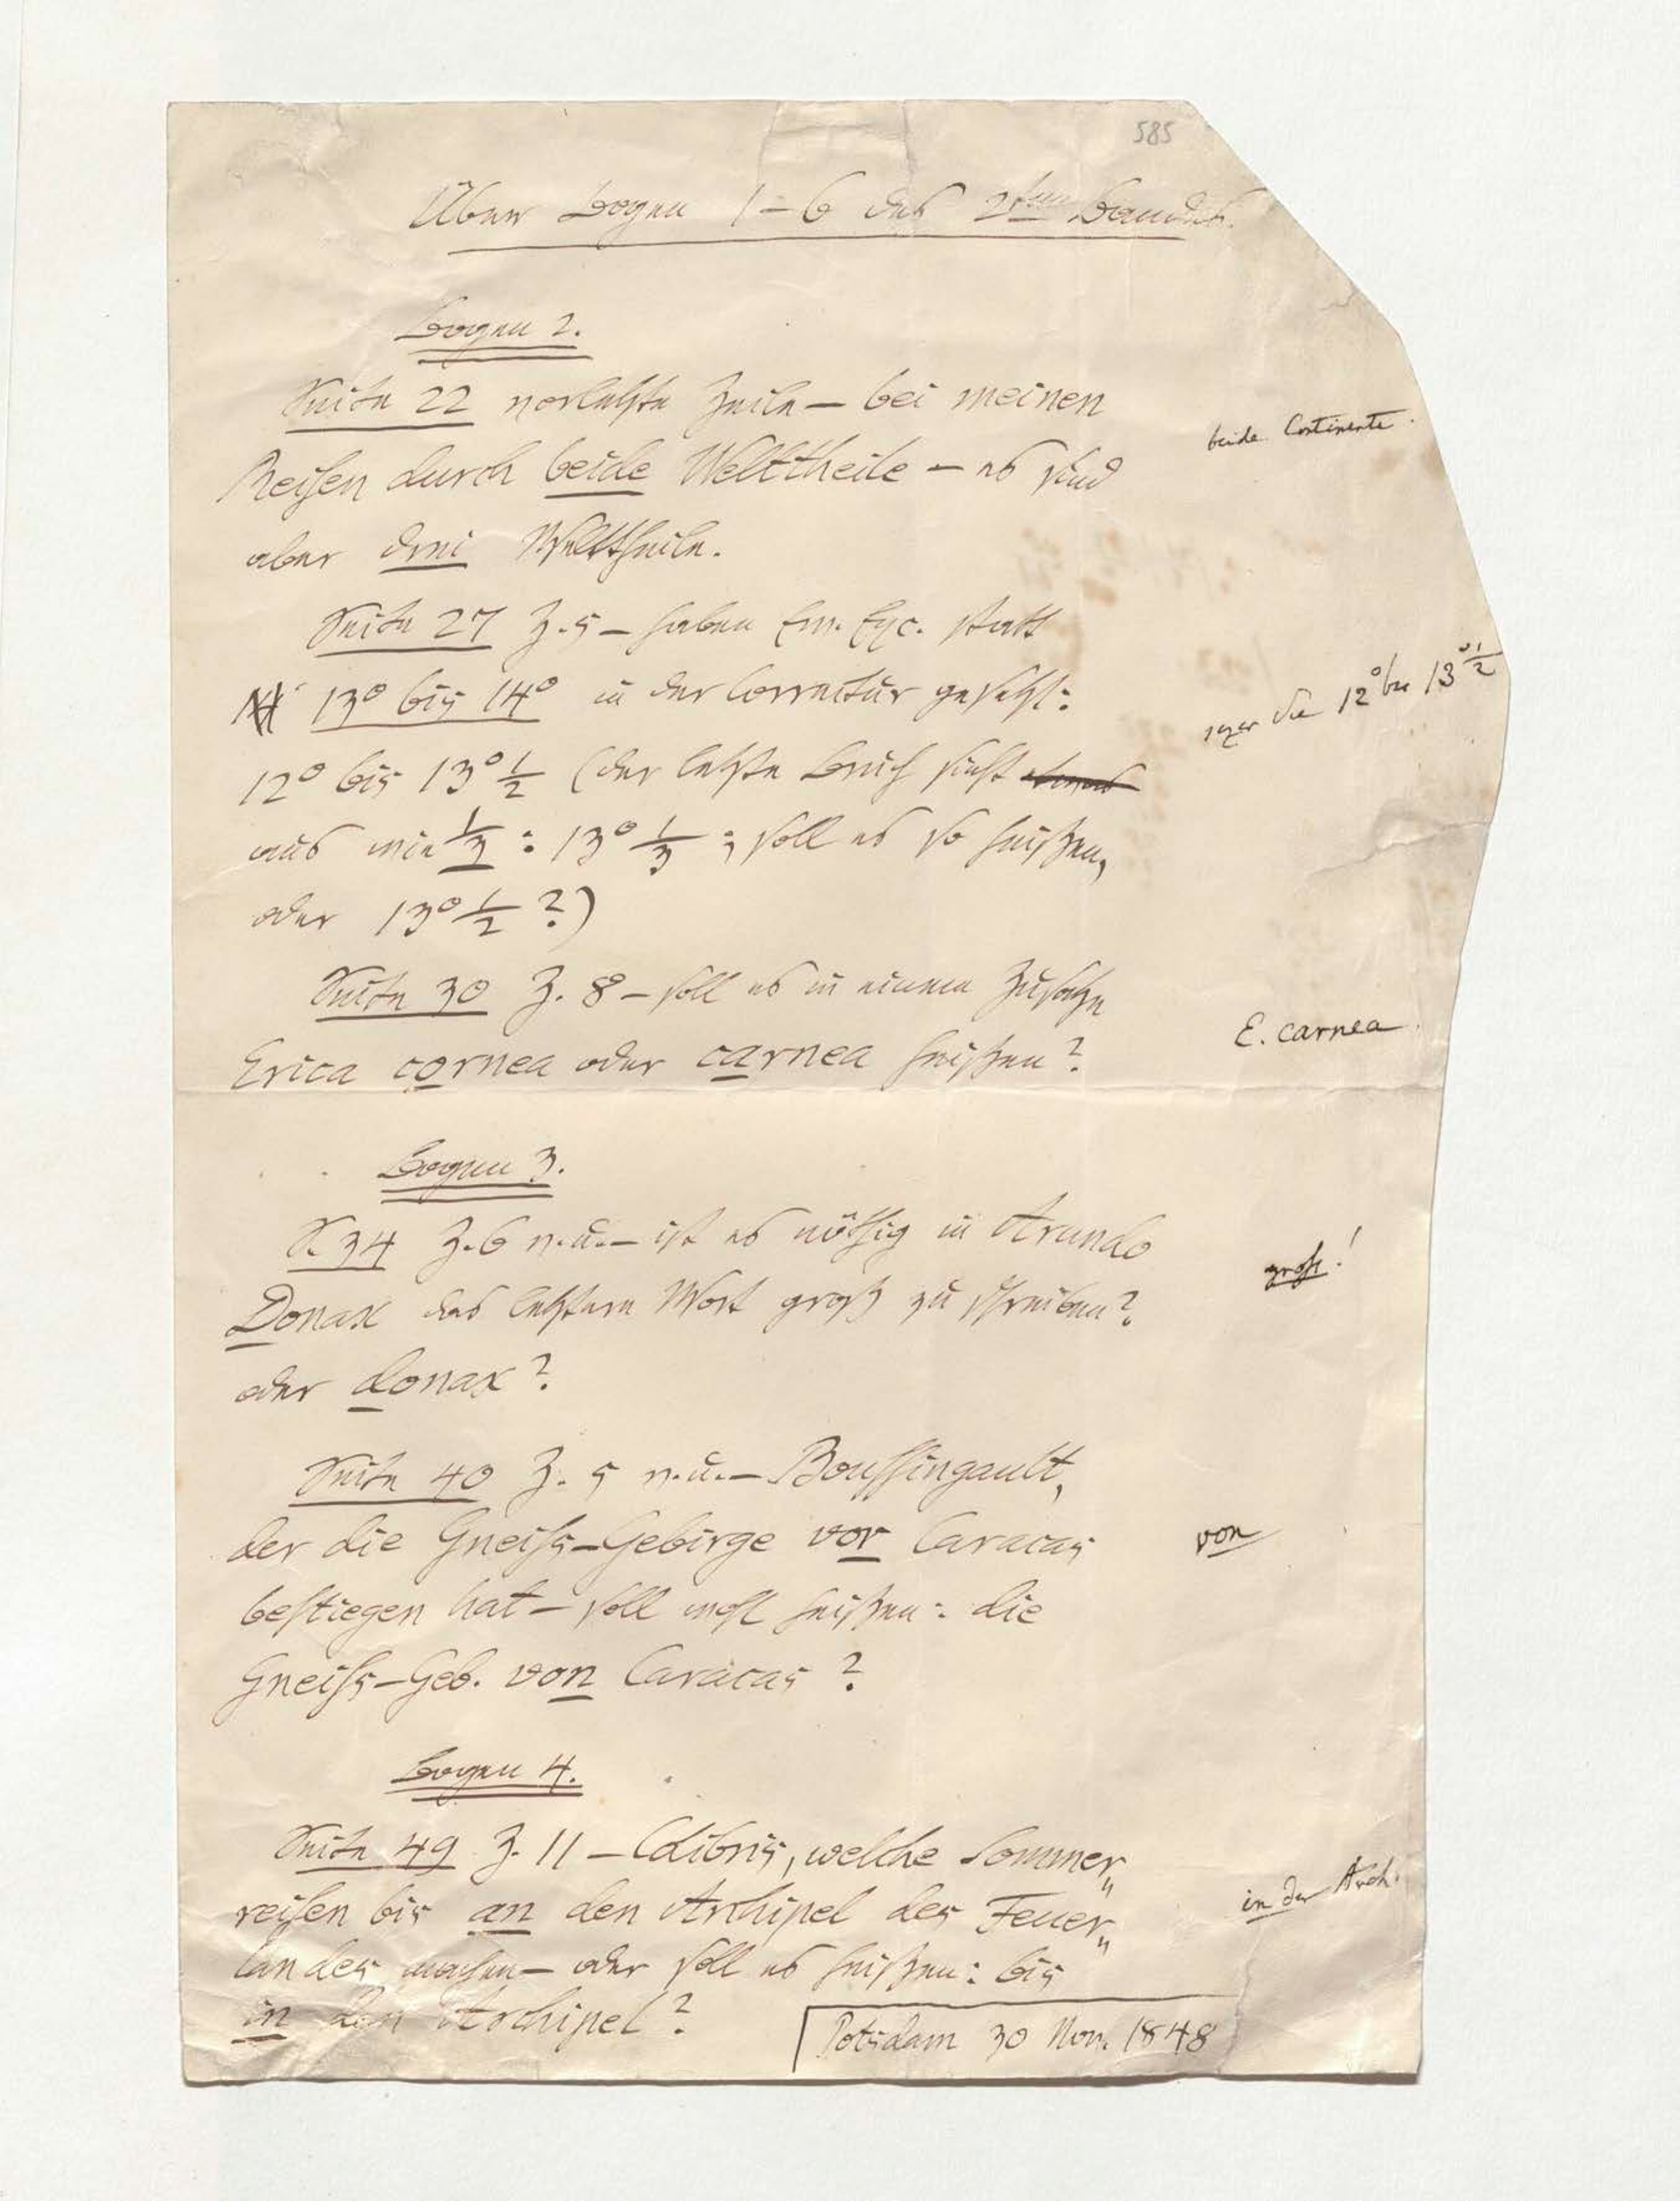 585
Über Bogen 1–6 des 2ten Bandes.
Bogen 2.
Seite 22 vorletzte Zeile – bei meinen
beide Continente.
Reisen durch beide Welttheile – es sind
aber drei Welttheile.
Seite 27 Z. 5 – haben Ew. Exc. statt
13° bis 14° in der Correctur gesetzt:
die 12° bis 13°½
12° bis 13°½ (der letzte Bruch sieht
aus wie ⅓: 13°⅓; soll es so heißen,
oder 13°½?)
Seite 30 Z. 8 – soll es in einem Zusatze
Erica cornea oder carnea heißen?
E. carnea.
Bogen 3.
S. 34 Z. 6 v. u. – ist es nöthig in Arundo
groß!
Donax das letztere Wort groß zu schreiben?
oder donax?
Seite 40 Z. 5 v. u. – Boussingault,
der die Gneiss-Gebirge vor Caracas
von
bestiegen hat – soll wohl heißen: die
Gneiss-Geb. von Caracas?
Bogen 4.
Seite 49 Z. 11 – Colibris, welche Sommer„
reisen bis an den Archipel des Feuer„
in der Arch.
landes machen – oder soll es heißen: bis
in den Archipel?
Potsdam 30 Nov. 1848